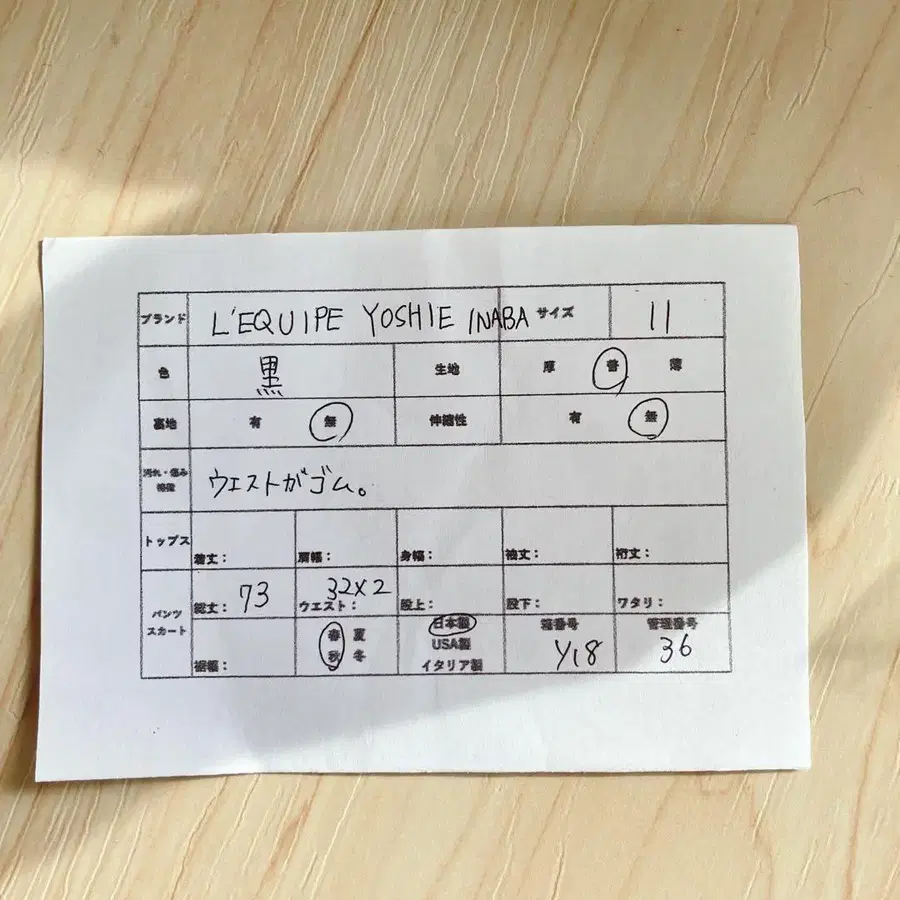 ブランド L'EQUIPE YOSHIE INABA サイズ 11
色 黒 生地 厚 普 薄
裏地 有 無 伸縮性 有 無
汚れ・傷み
特徴
ウエストがゴム。
トップス 着丈: 肩幅: 身幅: 袖丈: 裄丈:
パンツ
スカート
総丈: 73 ウエスト: 32×2 股上: 股下: ワタリ:
裾幅:
春 夏
秋 冬
日本製
USA製
イタリア製
箱番号
Y18
管理番号
36